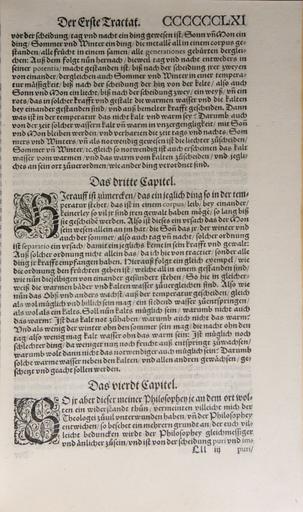 Der Erste Tractat. CCCCCCLXI
vor der scheidung/ tag vnd nacht ein ding gewesen ist: Sonn vñ Mon ein
ding: Sommer vnd Winter ein ding: die metalle all in einem corpus ge-
standen: alle frücht in einem samen: alle generationes gebürten derglei-
chen: Auß dem folgt nun hernach/ dieweil tag vnd nacht entweders in
seiner potentia, macht gestanden ist/ biß nach der scheidung/ vor zweyen
von einander/ dergleichen auch Sommer vnd Winter in einer tempera-
tur mässigkeit/ biß nach der scheidung der hitz von der kelte/ also auch
Sonn vnd Mon ein liecht/ biß nach der scheidung zwey/ ein weyß/ vñ ein
rots/ das in solcher krafft vnd gestalt die warmen wasser vnd die Kalten
bey einander gestanden sind/ vnd auß bemelter krafft gescheiden. Dann
was ist in der temperatur das nicht kalt vnd warm sey: Darumb auch
von der zeit solcher wassern kalt vñ warm in vnzergengligkeit/ mit Son
vnd Mon bleiben werden/ vnd verharren die zeit tags vnd nachts/ Som
mers vnd Winters/ vñ als notwendig gewesen ist die liechter züscheiden/
Sommer vñ Winter/ ꝛc. gleich so notwendig ist auch erscheinen das Kalt
wasser vom warmen/ vnd das warm vom kalten züscheiden/ vnd jegli-
ches an sein ort züuerordnen/ wie ander ding verordnet sind.
Das dritte Capitel.
HJerauff ist zümercken/ das ein jeglich ding so in der tem-
peratur stehet/ das ist in einem corpus, leib/ bey einander/
keinerley so vil jr sind jren gewalt haben möge/ so lang biß
sie gescheiden werden. Also ist dises ein vrsach das der Mon
sein wesen allein an jm hat: die Son das jr/ der winter vnd
auch der sommer/ also auch tag vñ nacht/ solcher ordnung
ist separatio ein vrsach/ damit ein jeglichs keme in sein krafft vnd gewalt:
Auß solcher ordnung nicht allein das/ da ich hie von tractier/ sonder alle
ding jr krafft empfangen haben. Hierauß folgt ein gleich exempel/ wie
die ordnung den früchten geben ist/ welche all in einem gestanden sind/
wie nun dieselbigen von einander gesündert stehen: So hie in gleicher
weiß die warmen bäder vnd Kalten wasser züuergleichen sind. Also wie
nun das Obs vnd anders wachst/ auß der temperatur gescheiden/ gleich
als wol müglich vnd billich sein mag/ ein siedendt wasser züentspringen/
als wol als ein kalts. Soll nun kalts müglich sein/ warumb nicht auch
das warm: Jst das Kalt naß zühaben/ warumb auch nicht das warm:
Vnd als wenig der winter ohn den sommer sein mag/ die nacht ohn den
tag/ also wenig mag kalt wasser ohn das warm sein: Jst müglich noch
schlechter ding/ da weniger nutz noch frucht auß entspringt züwachsen/
warumb wolt dann nicht das notwendiger auch müglich sein: Darumb
solche warme wasser neben den kalten/ vnd allen andern gewächsen/ ge-
scheiden vnd gmacht sollen werden.
Das vierdt Capitel.
SO jr aber dieser meiner Philosophey je an dem ort wol-
ten ein widerstandt thün/ vermeinten villeicht mich der
Theologei züuil vnterwunden haben/ vñ der Philosophey
entwichen/ so besehet ein mehrern grundt an/ der euch vil-
leicht beduncken wirdt der Philosophey gleichmessiger
vnd anlicher züsein/ vnd ist von der scheidung puri vnd im-
Lll iij puri/